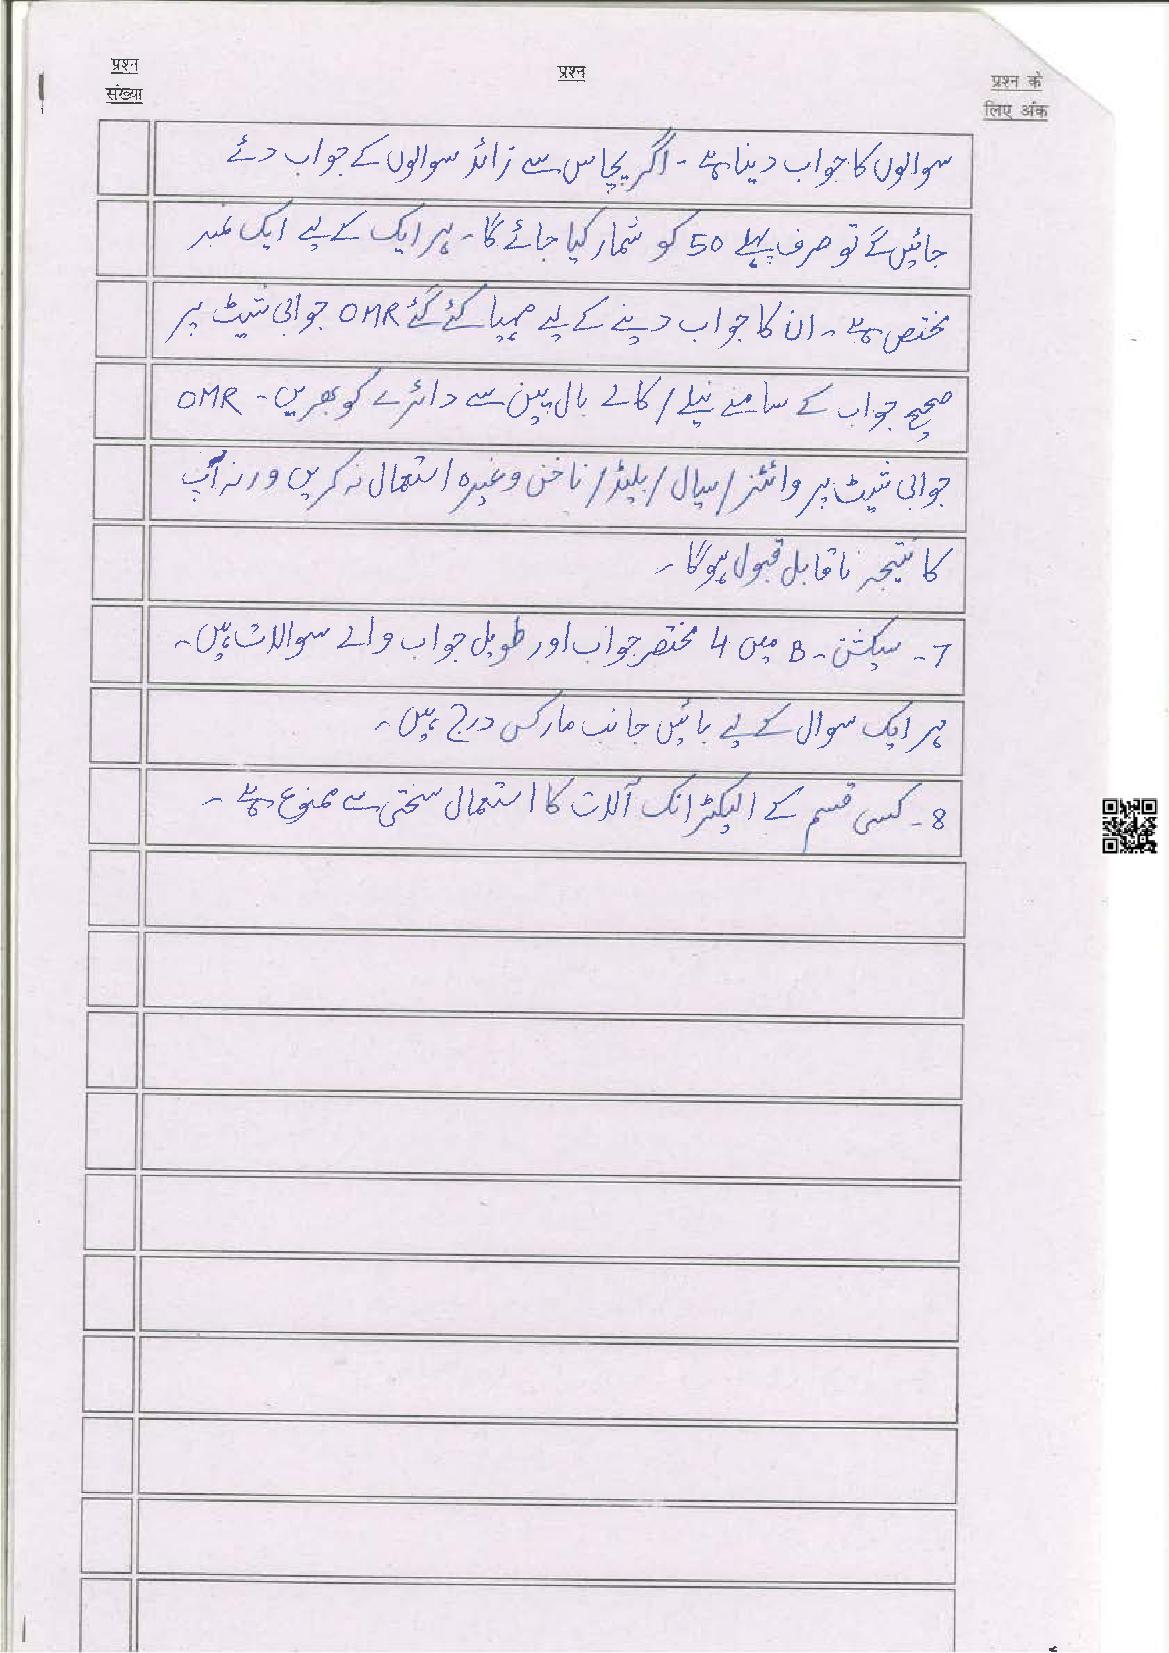 प्रश्न संख्या
प्रश्न
प्रश्न के लिए अंक
سوالوں کا جواب دینا ہے - اگر پچاس سے زائد سوالوں کے جواب دئے
جائیں گے تو صرف پہلے 50 کو شمار کیا جائے گا - ہر ایک کے لیے ایک نمبر
مختص ہے - ان کا جواب دینے کے لیے مہیا کئے گئے OMR جوابی شیٹ پر
صحیح جواب کے سامنے نیلے / کالے بال پین سے دائرے کو بھریں - OMR
جوابی شیٹ پر وائٹنر / سیال / بلیڈ / ناخن وغیرہ استعمال نہ کریں ورنہ آپ
کا نتیجہ ناقابل قبول ہوگا -
7- سیکشن - B میں 4 مختصر جواب اور طویل جواب والے سوالات ہیں -
ہر ایک سوال کے لیے بائیں جانب مارکس درج ہیں -
8- کسی قسم کے الیکٹرانک آلات کا استعمال سختی سے ممنوع ہے -